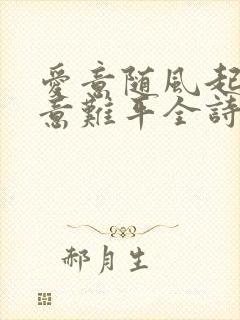 愛意随風起
意難平全詩
郝月生